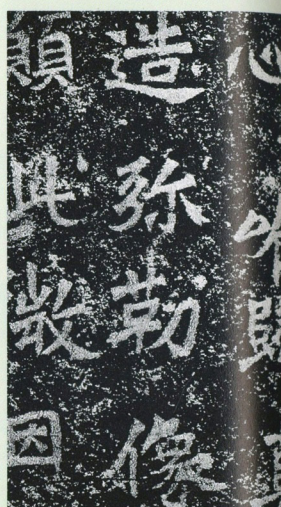 心
造弥勒像
願此𢼸因